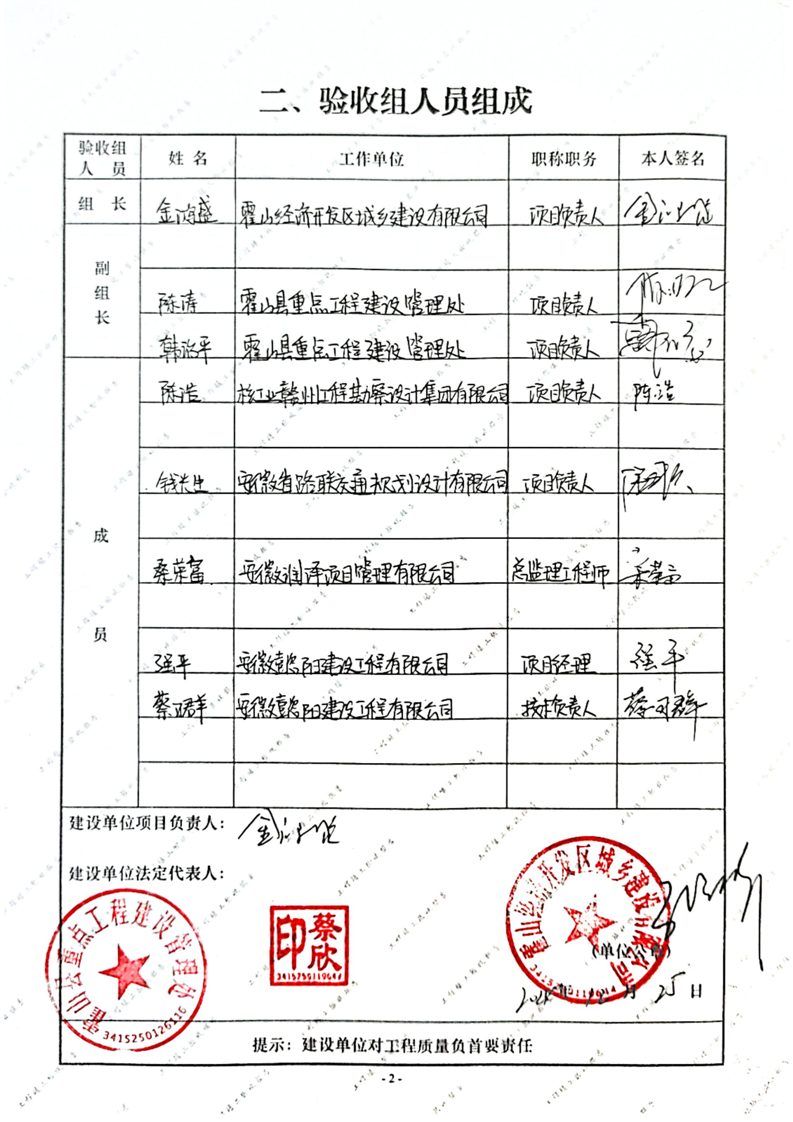 二、验收组人员组成
验收组人员 姓名 工作单位 职称职务 本人签名
组长 金鸿盛 霍山经济开发区城乡建设有限公司 项目负责人
副组长
陈涛 霍山县重点工程建设管理处 项目负责人
韩治平 霍山县重点工程建设管理处 项目负责人
成员
陈浩 核工业赣州工程勘察设计集团有限公司 项目负责人 陈浩
钱长生 安徽省路联交通规划设计有限公司 项目负责人
桑荣富 安徽润泽项目管理有限公司 总监理工程师 桑荣富
强平 安徽懿阳建设工程有限公司 项目经理 强平
蔡卫群 安徽懿阳建设工程有限公司 技术负责人
建设单位项目负责人:
建设单位法定代表人:
霍山县重点工程建设管理处
3415250126116
蔡欣印
霍山经济开发区城乡建设有限公司
(单位公章)
年12月25日
提示:建设单位对工程质量负首要责任
- 2 -